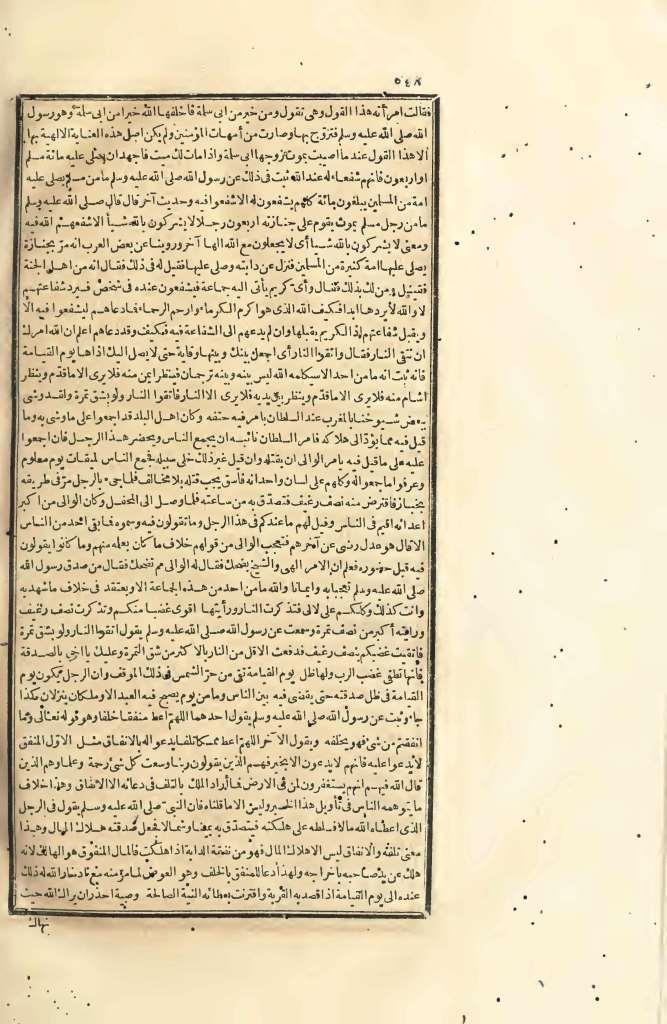 ٥٤٨
فقالت امرأته هذا القول وهى تقول ومن خير من ابى سلمة فأخلفها الله خيرا من ابى سلمة وهو رسول
الله صلى الله عليه وسلم فتزوج بها وصارت من أمهات المؤمنين ولم يكن اصل هذه العناية الالهية بها
الا هذا القول عند ما أصيبت بموت زوجها ابى سلمة واذا مات لك ميت فاجهد ان يصلى عليه مائة مسلم
او أربعون فانهم شفعاء له عند الله ثبت فى ذلك عن رسول الله صلى الله عليه وسلم ما من مسلم يصلى عليه
امة من المسلمين يبلغون مائة كلهم يشفعون له الا شفعوا فيه وحديث آخر قال قال صلى الله عليه وسلم
ما من رجل مسلم يموت يقوم على جنازته اربعون رجلا لا يشركون بالله شيأ الا شفعهم الله فيه
ومعنى لا يشركون بالله شيأ أى لا يجعلون مع الله الها آخر وروينا عن بعض العرب انه مرّ بجنازة
يصلى عليها امة كثيرة من المسلمين فنزل عن دابته وصلى عليها فقيل له فى ذلك فقال انه من اهل الجنة
فقيل ومن لك بذلك فقال وأى كريم يأتى اليه جماعة فيشفعون عنده فى شخص فيرد شفاعتهم
لا والله لا يردها ابدا فكيف الله الذى هو اكرم الكرماء وارحم الرحماء فما دعاهم ليشفعوا فيه الا
ويقبل شفاعتهم اذ الكريم يقبلها وان لم يدعهم الى الشفاعة فيه فكيف وقد دعاهم اعلم ان الله امرك
ان تتقى النار فقال واتقوا النار أى اجعل بينك وبينها وقاية حتى لا يصل اليك اذاها يوم القيامة
فانه ثبت انه ما من احد الا سيكلمه الله ليس بينه وبينه ترجمان فينظر ايمن منه فلا يرى الا ما قدّم وينظر
اشأم منه فلا يرى الا ما قدّم وينظر بين يديه فلا يرى الا النار فاتقوا النار ولو بشق تمرة ولقد وشى
ببعض شيوخنا بالمغرب عند السلطان بامر فيه حتفه وكان اهل البلد قد اجمعوا على ما وشى به وما
قيل فيه مما يؤدّى الى هلاكه فامر السلطان نائبه ان يجمع الناس ويحضر هذا الرجل فان اجمعوا
عليه على ما قيل فيه يامر الوالى ان يقتله وان قيل غير ذلك خلى سبيله فجمع الناس لميقات يوم معلوم
وعرفوا ما جمعوا له وكلهم على لسان واحد انه فاسق يجب قتله بلا مخالف فلما جىء بالرجل مرّ فى طريقه
بخباز فاقترض منه نصف رغيف فتصدّق به من ساعته فلما وصل الى المحفل وكان الوالى من اكبر
اعدائه اقيم فى الناس وقيل لهم ما عندكم فى هذا الرجل وما تقولون فيه وسموه فما بقى أحد من الناس
الا قال هو عدل رضى عن آخرهم فتعجب الوالى من قولهم خلاف ما كان يعلمه منهم وما كانوا يقولون
فيه قبل حضوره فعلم ان الامر الهى والشيخ يضحك فقال له الوالى مم تضحك فقال من صدق رسول الله
صلى الله عليه وسلم تعجبا به وايمانا والله ما من احد من هذه الجماعة الا ويعتقد فى خلاف ما شهد به
وانت كذلك وكلكم على لا لى فتذكرت النار ورأيتها اقوى غضبا منكم وتذكرت نصف رغيف
ورأيته أكبر من نصف تمرة وسمعت عن رسول الله صلى الله عليه وسلم يقول اتقوا النار ولو بشق تمرة
فاتقيت غضبكم بنصف رغيف فدفعت الاقل من النار بالاكثر من شق التمرة وعليك يا اخى بالصدقة
فانها تطفى غضب الرب ولها ظل يوم القيامة تقى من حرّ الشمس فى ذلك الموقف وان الرجل يكون يوم
القيامة فى ظل صدقته حتى يقضى فيه بين الناس وما من يوم يصبح فيه العبد الا وملكان ينزلان كذا
جاء وثبت عن رسول الله صلى الله عليه وسلم يقول احدهما اللهم اعط منفقا خلفا وهو قوله تعالى وما
انفقتم من شئ فهو يخلفه ويقول الآخر اللهم اعط ممسكا تلفا يدعو له بالانفاق مثل الاوّل المنفق
لا يدعو عليه فانهم لا يدعون الا بخير فهم الذين يقولون ربنا وسعت كل شئ رحمة وعلما وهم الذين
قال الله فيهم انهم يستغفرون لمن فى الارض فما أراد الملك بالتلف فى دعائه الا الانفاق وهذا خلاف
ما يتوهمه الناس فى تأويل هذا الخبر وليس الا ما قلناه فان النبىّ صلى الله عليه وسلم يقول فى الرجل
الذى اعطاه الله مالا فسلطه على هلكته فيتصدّق به يمينا وشمالا فجعل صدقته هلاك المال وهذا
معنى تلفه والانفاق ليس الا هلاك المال فهو من نفقت الدابة اذا هلكت فالمال المنفوق هو الهالك لانه
هلك عن يد صاحبه باخراجه ولهذا دعا للمنفق بالخلف وهو العوض لما مرّ منه مع ادخار الله له ذلك
عنده الى يوم القيامة اذا قصد به القربة واقترنت بعطائه النية الصالحة وصية احذر ان يراك الله حيث
نهاك